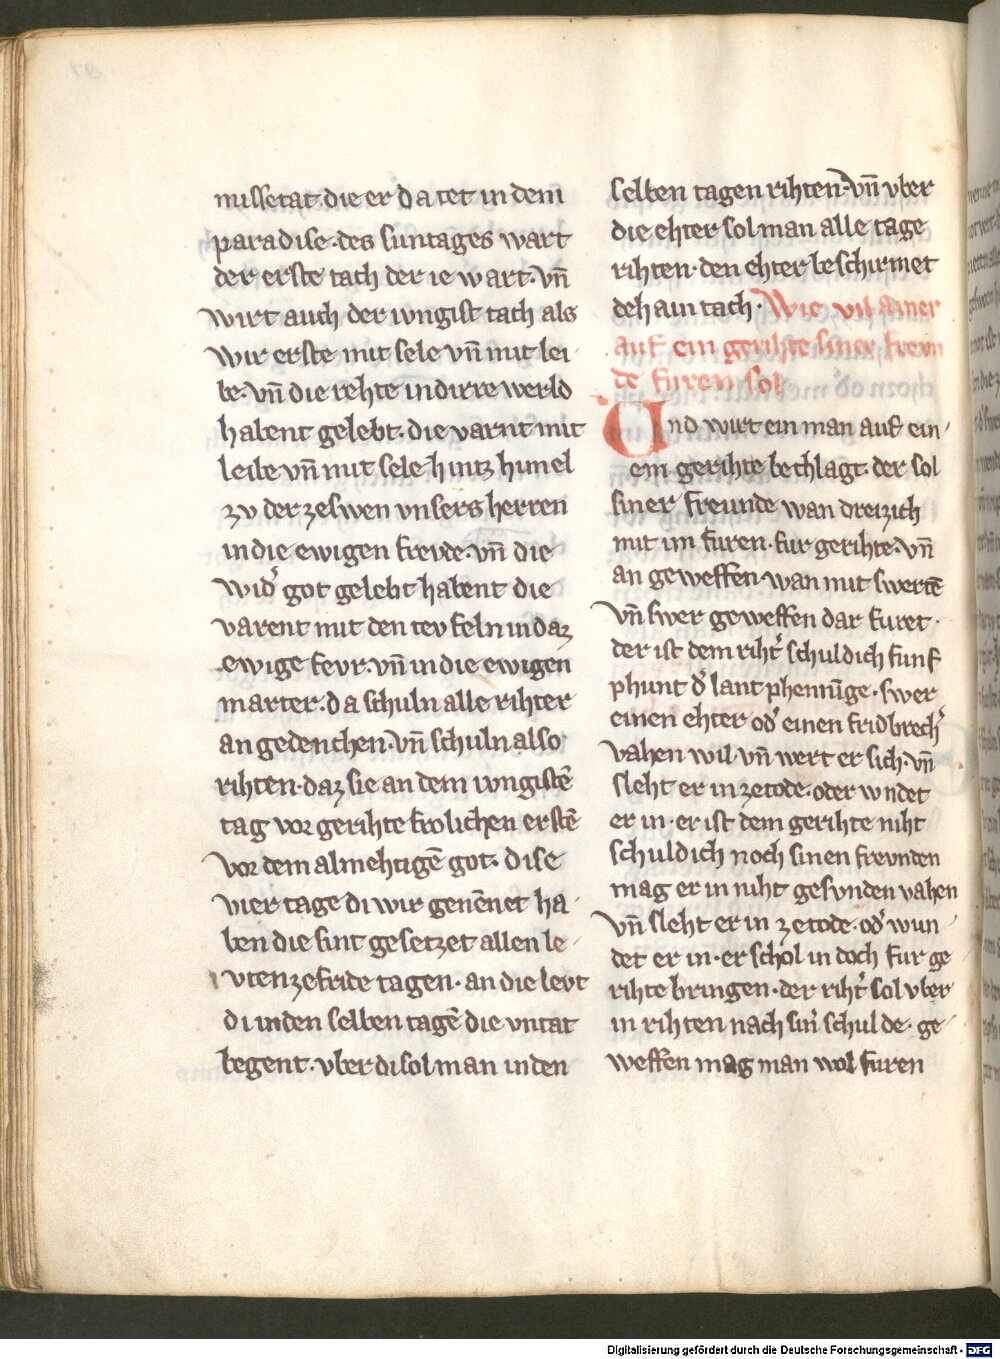 missetat. die er da tet in dem
paradise. des suntages wart
der erste tach der ie wart. vñ
wirt auch der iungist tach als
wir erste mit sele vñ mit lei
be. vñ die rehte in dirre werld
habent gelebt. die varnt mit
leibe vñ mit sele hintz himel
zv der zeswen vnsers herren
in die ewigen frevde. vñ die
wid̓ got gelebt habent die
varent mit den tevfeln in daz
ewige fevr. vñ in die ewigen
marter. da schuln alle rihter
an gedenchen. vñ schuln also
rihten. daz sie an dem iungistē
tag vor gerihte frolichen erstē
vor dem almehtigē got. dise
vier tage di wir genēnet ha
ben die sint gesetzet allen le
vten ze fride tagen. an die levt
di in den selben tagē die vntat
begent. vber di sol man in den
selben tagen rihten. vñ vber
die ehter sol man alle tage
rihten. den ehter beschirmet
dehain tach. Wie vil ainer
auf ein gerihte siner frevn
de furen sol
Und wirt ein man auf ein
em gerihte bechlagt. der sol
siner freunde wan dreizich
mit im furen. fur gerihte. vñ
an geweffen. wan mit swertē
vñ swer geweffen dar furet.
der ist dem riht̓ schuldich funf
phunt d̓ lant phennīge. swer
einen ehter od̓ einen fridbrech̓
vahen wil. vñ wert er sich. vñ
sleht er in ze tode. oder wndet
er in. er ist dem gerihte niht
schuldich noch sinen frevnden
mag er in niht gesvnden vahen
vñ sleht er in ze tode. od̓ wun
det er in. er schol in doch fur ge
rihte bringen. der riht̓ sol vber
in rihten nach sin̓ schulde. ge
weffen mag man wol furen
Digitalisierung gefördert durch die Deutsche Forschungsgemeinschaft - DFG